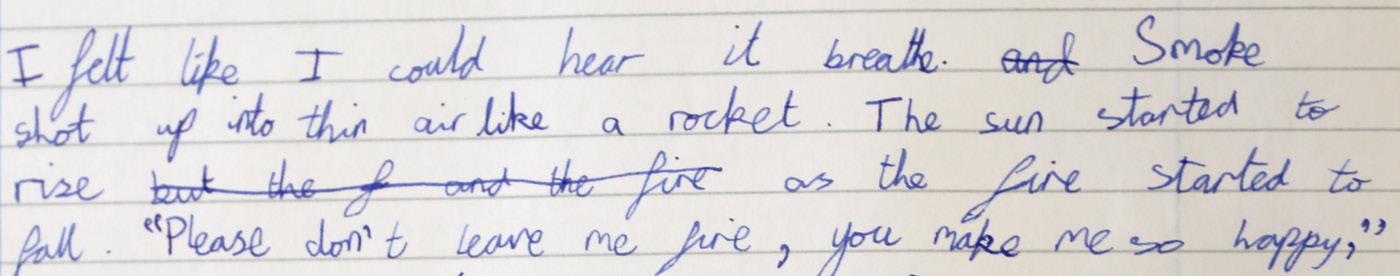 I felt like I could hear it breathe. and Smoke
shot up into thin air like a rocket. The sun started to
rise but the f and the fire as the fire started to
fall. "Please don't leave me fire, you make me so happy,"